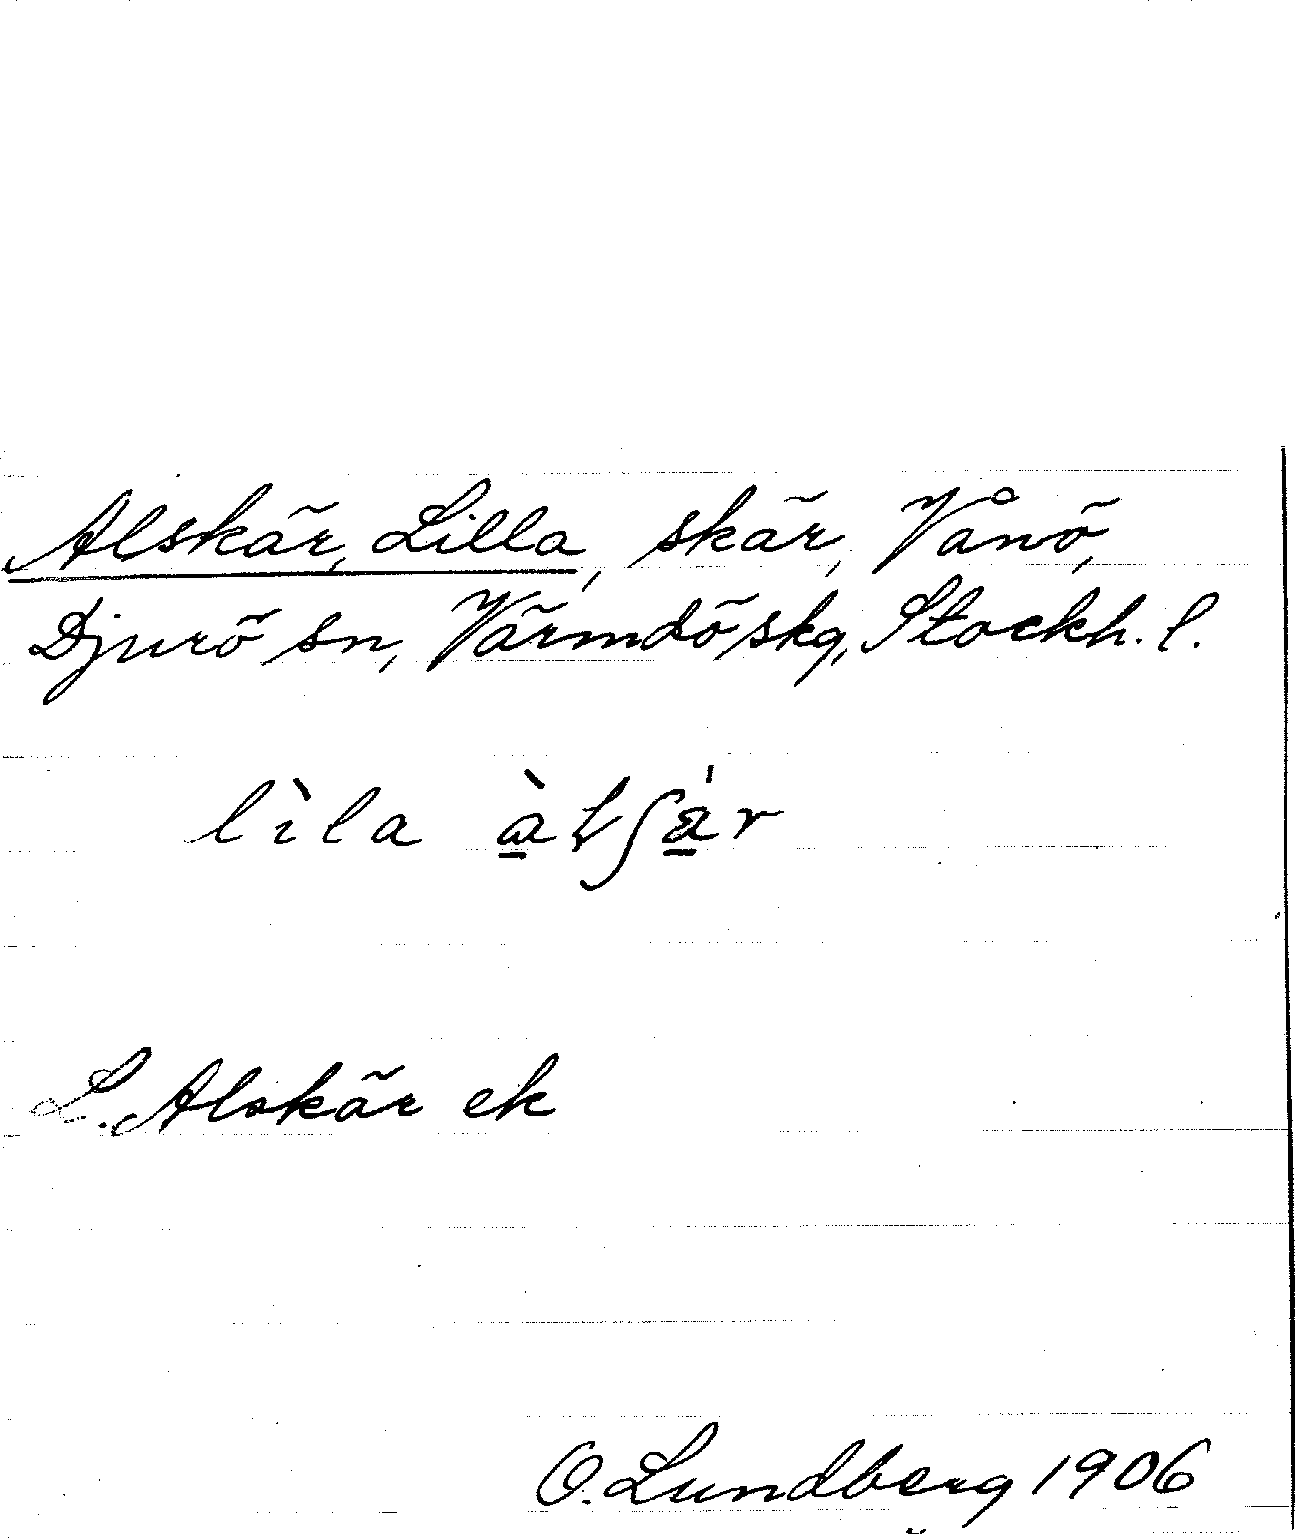 Alskär, Lilla, skär, Vånö,
Djurö sn, Värmdö skg, Stockh. l.
lìla
L. Alskär ek
O. Lundberg 1906